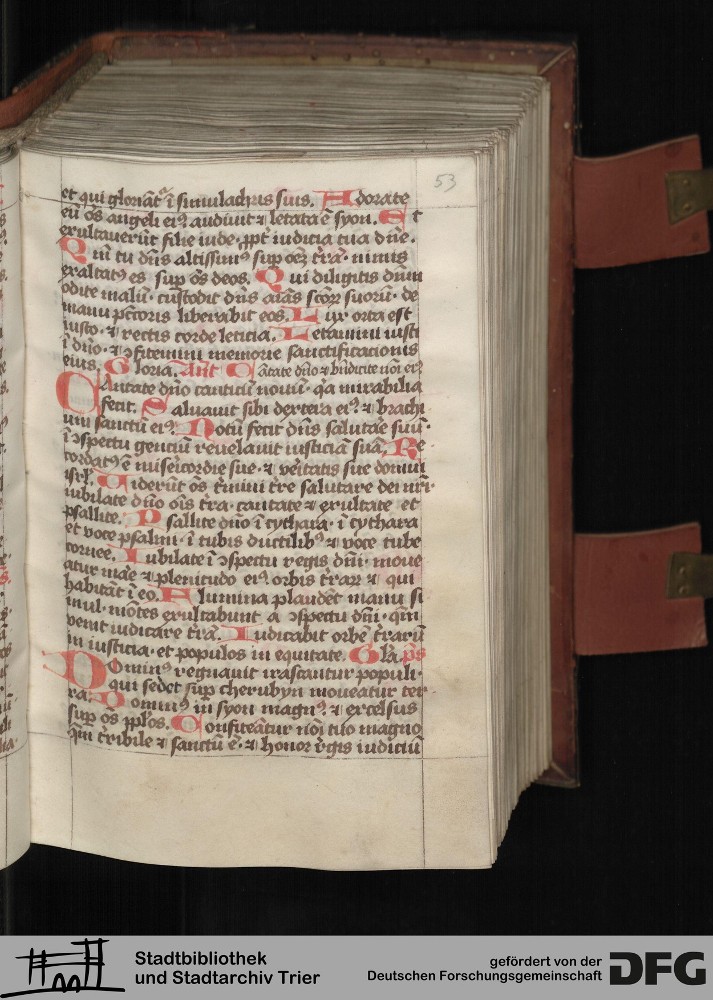 53
et qui gloriāt᷒ ī simulachris suis. Adorate
eū ōs angeli eiꝰ audiuit ⁊ letata ē syon. Et
exultauerūt filie iude ꝓpt̄ iudicia tua dn̄e.
Qm̄ tu dn̄s altissimꝰ suꝑ oēꝫ t̄rā· nimis
exaltatꝰ es suꝑ ōs deos. Qui diligitis dn̄m
odite malū· custodit dn̄s aīas sc̄oꝝ suorū· de
manu pctoris liberabit eos. Lux orta est
iusto· ⁊ rectis corde leticia. Letamini iusti
ī dn̄o· ⁊ ꝯfitemini memorie sanctificacionis
eius. Gloria. Ant̄ Cātate dn̄o ⁊ bn̄dicite nōi eiꝰ
Cantate dn̄o canticū nouū· q̄a mirabilia
fecit. Saluauit sibi dextera eiꝰ· ⁊ brachi
um sanctū eiꝰ. Notū fecit dn̄s salutāe suū·
ī ꝯspectu genciū reuelauit iusticiā suā. Re
cordatꝰ ē misericordie sue· ⁊ ueritatis sue domui
isrl̄. Viderūt ōs t̄mini t̄re salutare dei nr̄i·
iubilate dn̄o ōīs t̄ra· cantate ⁊ exultate et
psallite. Psallite dn̄o ī cythara· ī cythara
et voce psalmi· ī tubis ductilibꝰ ⁊ voce tube
cornee. Iubilate ī ꝯspectu regis dn̄i· moue
atur māe ⁊ plenitudo eiꝰ orbis t̄raꝝ ⁊ qui
habitāt ī eo. Flumina plaudēt manu si
mul· mōtes exultabunt a ꝯspectu dn̄i· qm̄
uenit iudicare t̄rā. Iudicabit orbē t̄rarū
in iusticia· et populos in equitate. Gl̄a. ps̄
Dominꝰ regnauit irascantur populi·
qui sedet suꝑ cherubyn moueatur ter
ra. Dominꝰ in syon magnꝰ· ⁊ excelsus
suꝑ ōs ppl̄os. Confiteātur nōi tuo magno
qm̄ t̄ribile ⁊ sanctū ē· ⁊ honor r̄gis iudiciū
Stadtbibliothek
und Stadtarchiv Trier
gefördert von der
Deutschen Forschungsgemeinschaft
DFG